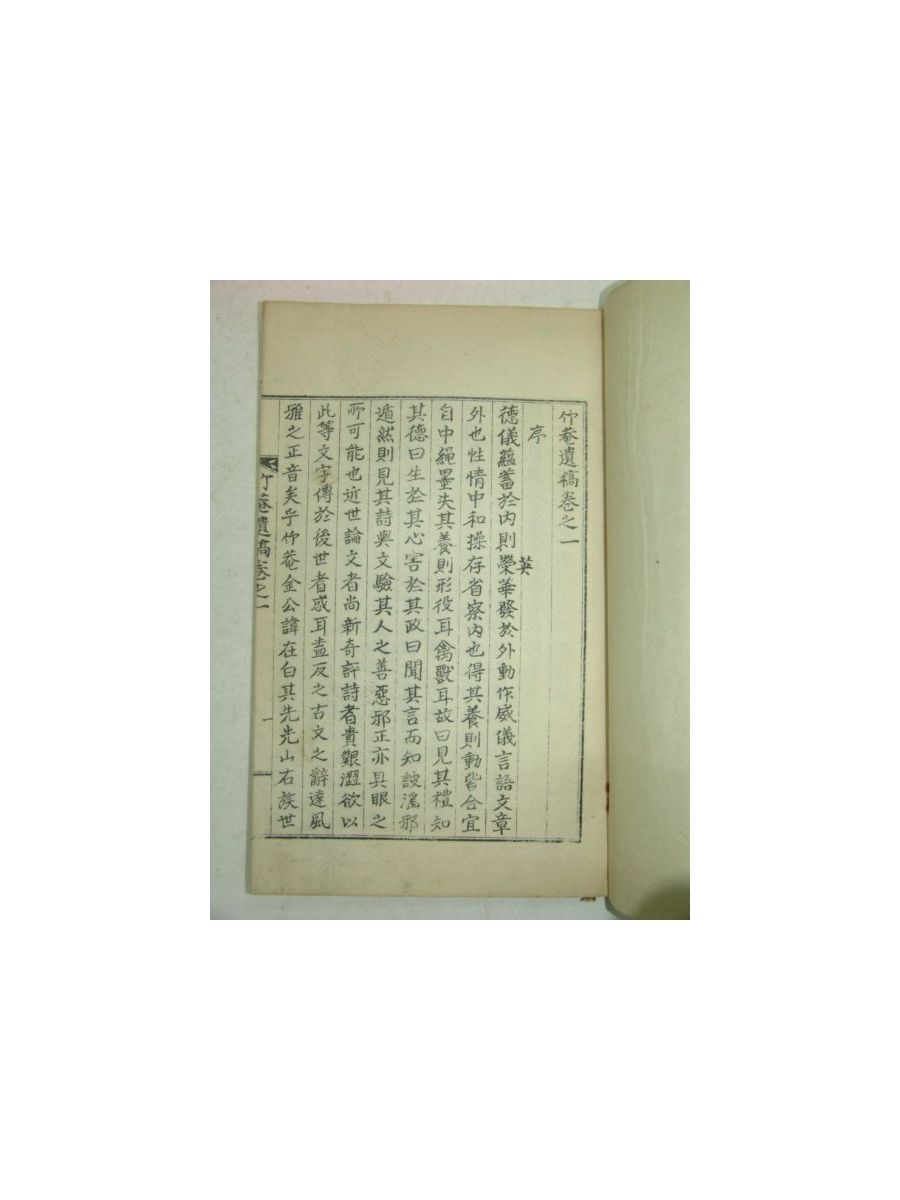 竹菴遺稿卷之一
序
英
德儀蘊蓄於內則榮華發於外動作威儀言語文章
外也性情中和操存省察內也得其養則動皆合宜
自中繩墨失其養則形役耳禽獸耳故曰見其禮知
其德曰生於其心害於其政曰聞其言而知詖淫邪
遁然則見其詩與文驗其人之善惡邪正亦具眼之
所可能也近世論文者尚新奇評詩者貴艱澀欲以
此等文字傳於後世者惑耳盍反之古文之辭達風
雅之正音矣乎竹菴金公諱在白其先先山右族世
竹菴遺稿卷之一
一